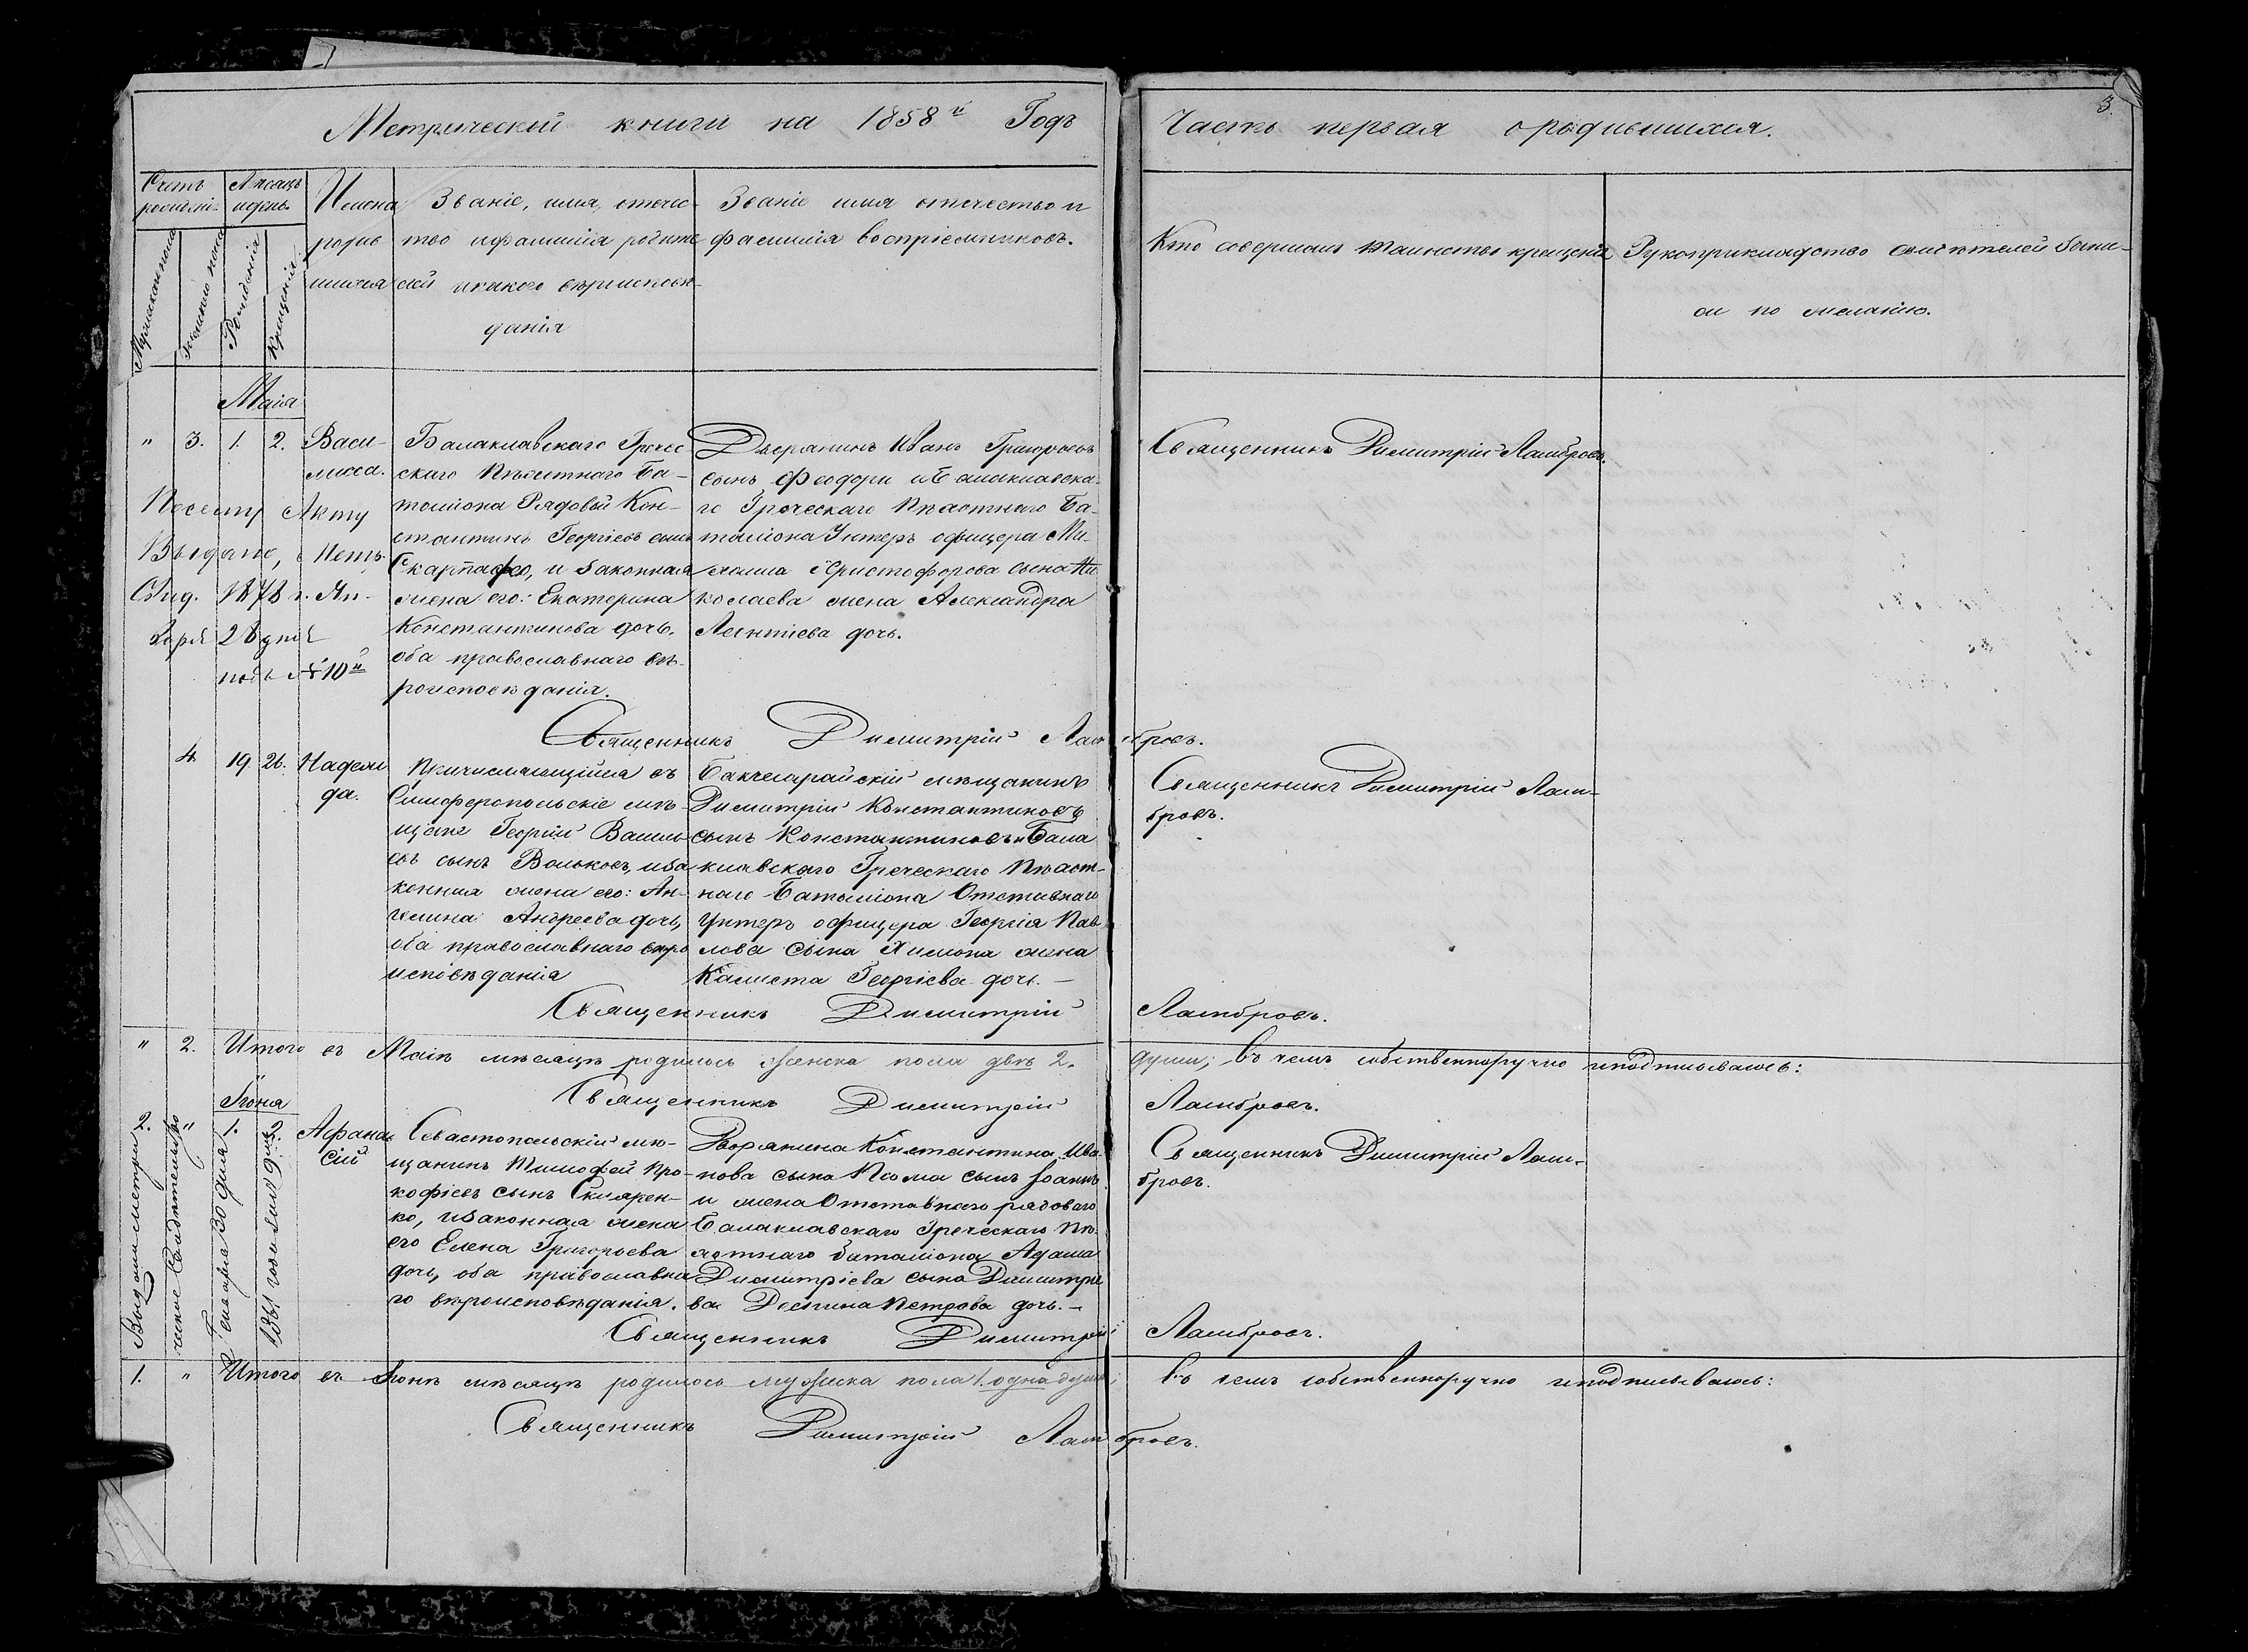 Метрической книги на 1858й Годъ
Часть первая ородившихся.
3.
Счетъ родившихся
Мѣсяцъ и день.
Имена родив
шихся
Званіе, имя, отчес-
тво ифамилія родите
лей икакого вѣриспове-
данія
Званіе имя отчество и
фамилія воспріемниковъ.
Кто совершалъ таинство крещенія
Рукоприкладство свидѣтелей запи-
си по желанію.
Мужеска пола
Женска пола
Рожденія
Крещенія
Маія
" 3. 1. 2.
Васи-
лисса.
Балаклавскаго Гречес
скаго Пѣхотнаго Ба-
таліона Рядовый Кон-
стантинъ Георгіевъ сынъ
и законная
жена его: Екатерина
Константинова дочь.
оба православнаго вѣ-
роисповѣданія.
Дворянинъ Иванъ Григорьевъ
сынъ Феодори и Балаклавска-
го Греческаго Пѣхотнаго Ба-
таліона Унтеръ офицера Ми
хаила Христофорова сына Ни
колаева жена Александра
Леонтіева дочь.
Священникъ Димитрій Ламбровъ.
Посему Акту
Выдано, Метр.
Свид. 1878 г. Ян-
варя 28 дня
подъ №10й
Священникъ Димитрій Ламбровъ.
4 19. 26.
Надеж
да.
Причисляющійся въ
Симферопольскіе мѣ-
щане Георгій Василь
евъ сынъ Вольковъ, иза
конная жена его: Ан-
гелина Андреева дочь,
оба православнаго вѣро
исповѣданія
Бакчесарайскій мѣщанинъ
Димитрій Константиновъ
сынъ Константиновъ и Бала
клавскаго Греческаго Пѣхот-
наго Баталіона Отставнаго
Унтеръ офицера Георгія Пав
лова сына Химона жена
Калиста Георгіева дочь.—
Священникъ Димитрій Лам-
бровъ.
Священникъ Димитрій Ламбровъ.
" 2. Итого въ Маіѣ мѣсяцѣ родилось женска пола двѣ 2. души; въ чемъ собственноручно иподписываюсь:
Священникъ Димитрій Ламбровъ.
Іюня
2. " 1. 2.
Афана
сій
Севастопольскій мѣ-
щанинъ Тимофей Про-
кофіевъ сынъ Скларен-
ко, изаконная жена
его Елена Григорьева
дочь, оба православна
го вѣроисповѣданія.
Дворянина Константина Ива-
нова сына Псома сынъ Іоаннъ
и жена Отставнаго рядоваго
Балаклавскаго Греческаго Пѣ-
хотнаго баталіона Адама
Димитріева сына Димитріе
ва Деспина Петрова дочь.—
Священникъ Димитрій Лам-
бровъ.
Выданы метри
ческое Свидетельство
30 дня
1861 года
Священникъ Димитрій Ламбровъ.
1. " Итого въ Іюнѣ мѣсяцѣ родилось мужеска пола 1. одна душа; въ чемъ собственноручно иподписываюсь:
Священникъ Димитрій Ламбровъ.